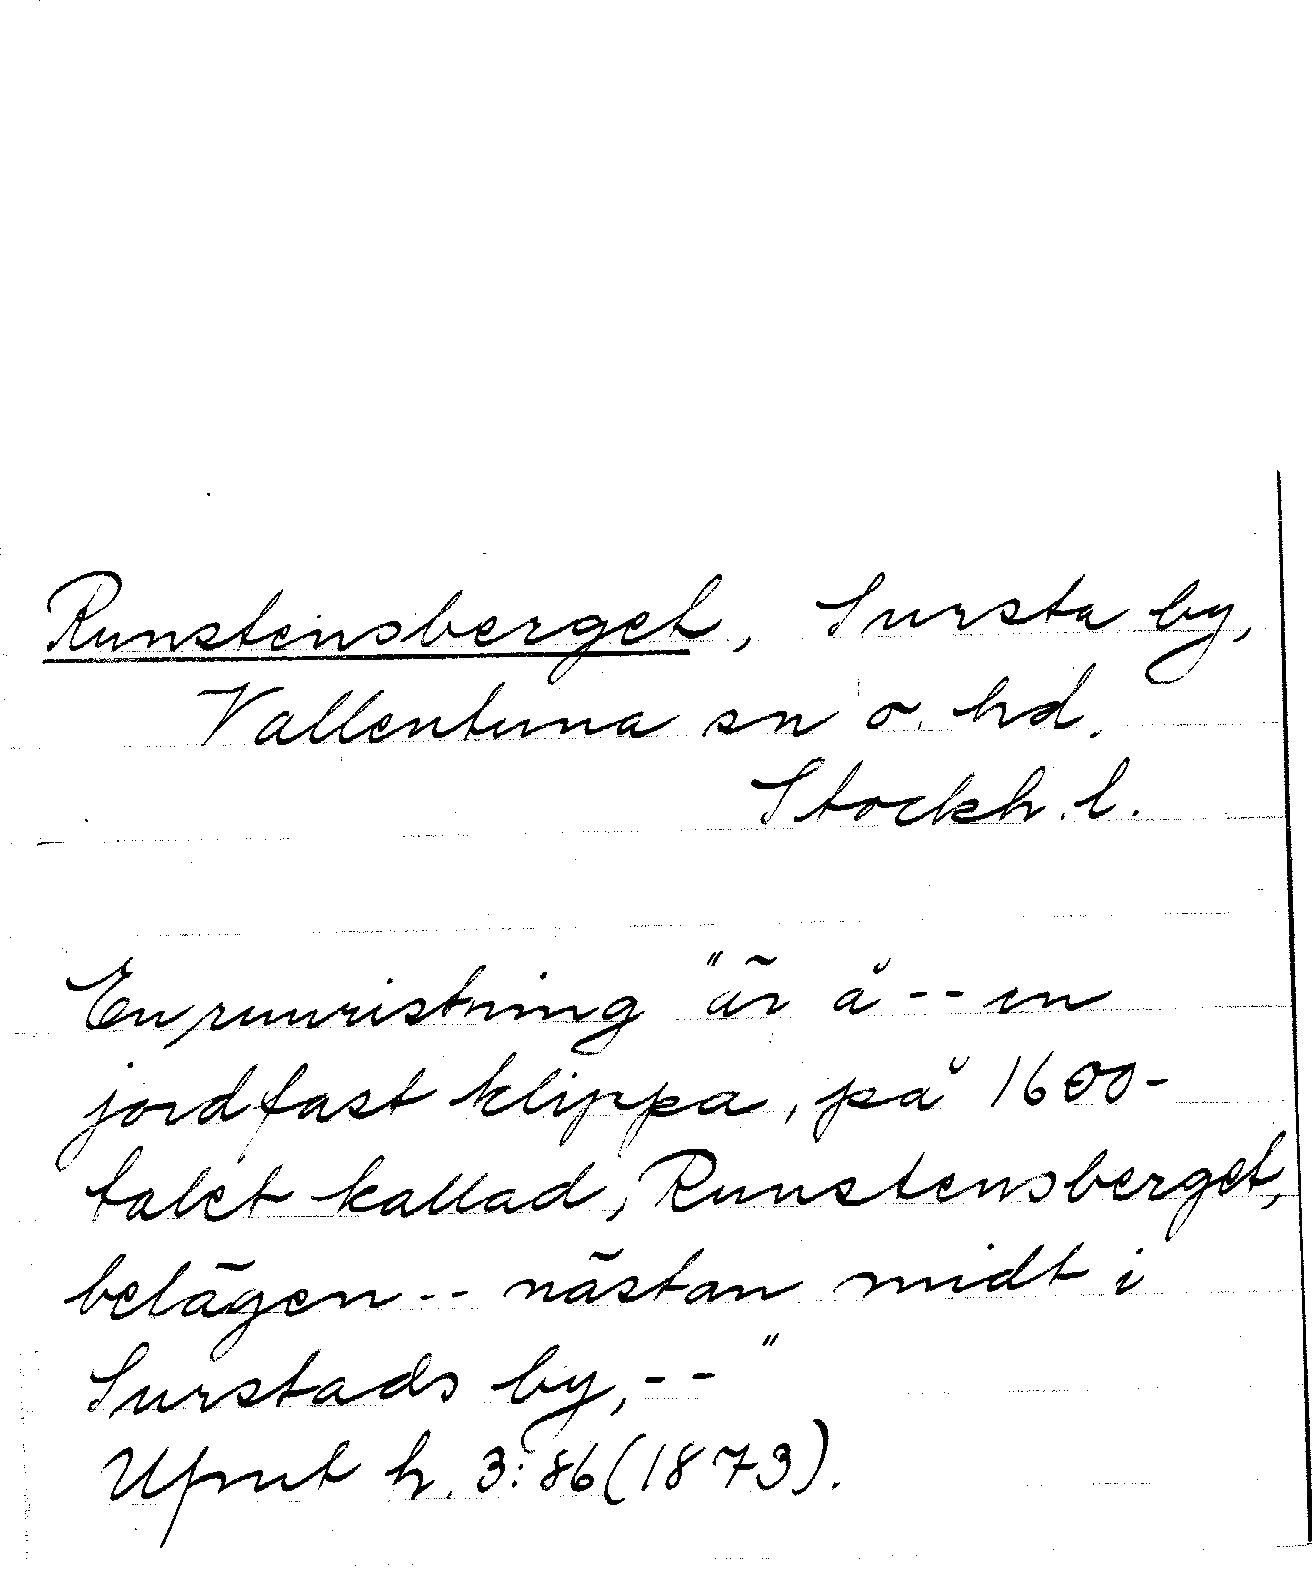 Runstensberget, Sursta by,
Vallentuna sn o. hd.
Stockh. l.
En runristning "är å -- en
jordfast klippa, på 1600-
talet kallad, Runstensberget,
belägen -- nästan midt i
Surstads by, -- "
Ufmt h. 3:86 (1873).